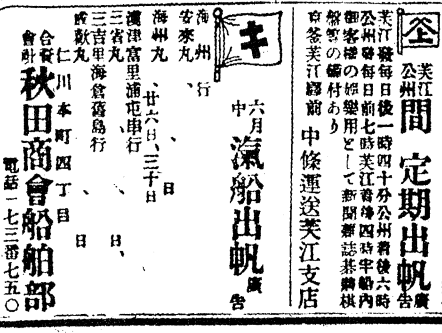 仌上
芙江
公州 間 定期出帆 廣告
芙江發每日後一時四十分公州着後六時
公州發每日前七時芙江着後四時半船內
御客樣の娛樂用として新聞雜誌碁將棋
盤等の備付あり
芙江驛前 中條運送芙江支店
キ
六月中 滊船出帆 廣告
海州行
安來丸 、 日
海州丸 廿六日、三十日
漢津富里浦屯串行
三省丸 、 日、
三吉里海倉舊島行
咸歡丸 、 日
仁川本町四丁目
合資會社 秋田商會船舶部
電話一七三番七五〇